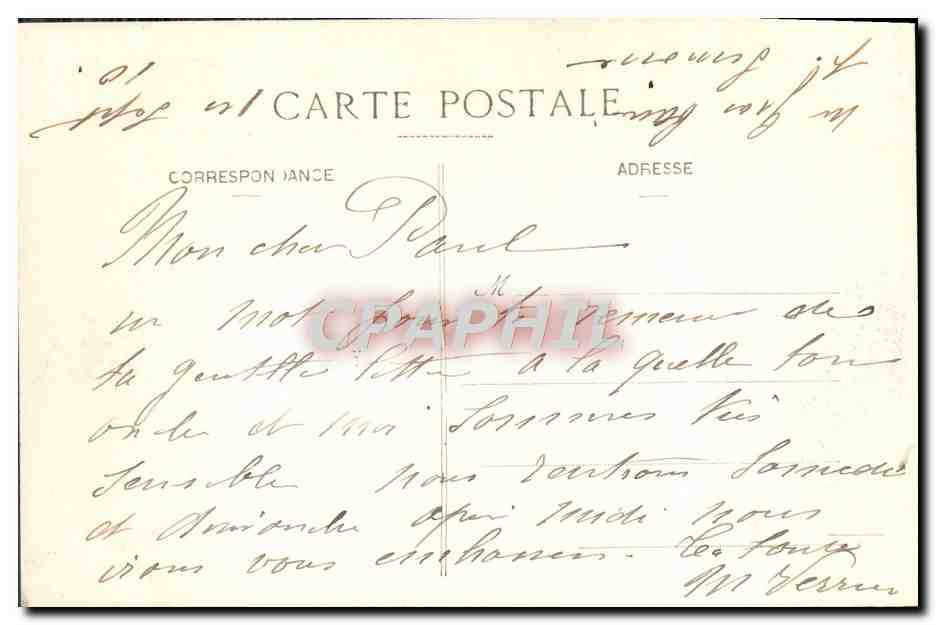 CARTE POSTALE
CORRESPONDANCE
ADRESSE
Mon cher Paul
M
CPAPHIL
un mot pour te remercier de
ta gentille lettre a la quelle ton
oncle et moi sommes très
sensible nous rentrons Samedi
et dimanche apri midi nous
irons vous embrasser. Ta tante
M Verrier